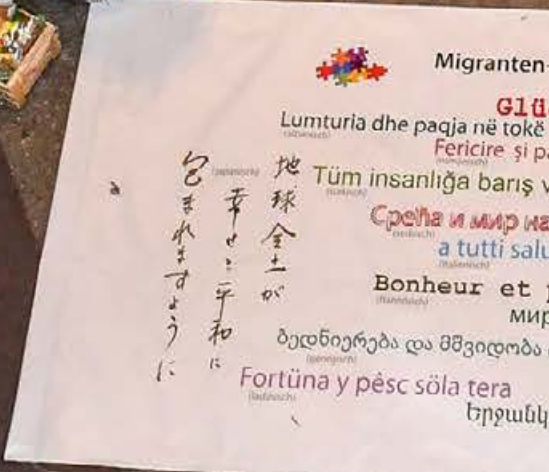 Migranten-
Glü
Lumturia dhe paqja në tokë
(albanisch)
Fericire și pa
(rumänisch)
Tüm insanlığa barış v
(türkisch)
Среħа и мир на
(serbisch)
a tutti salu
(italienisch)
Bonheur et p
(französisch)
мир
ბედნიერება და მშვიდობა
(georgisch)
Fortüna y pêsc söla tera
(ladinisch)
Երջանկ
(japanisch)
地球全土が
幸せと平和に
包まれますように